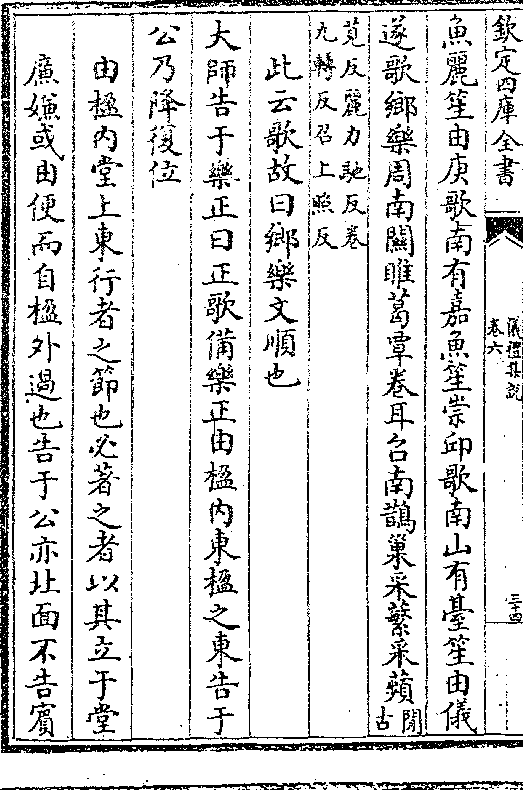 欽定四庫全書
儀禮集說
卷六
三十四
魚麗笙由庚歌南有嘉魚笙崇邱歌南山有臺笙由儀
遂歌鄉樂周南關雎葛覃卷耳召南鵲巢采蘩采蘋
間古
莧反麗力馳反卷
九轉反召上照反
此云歌故曰鄉樂文順也
大師告于樂正曰正歌備樂正由楹內東楹之東告于
公乃降復位
由楹內堂上東行者之節也必著之者以其立于堂
廉嫌或由便而自楹外過也告于公亦北面不告賓